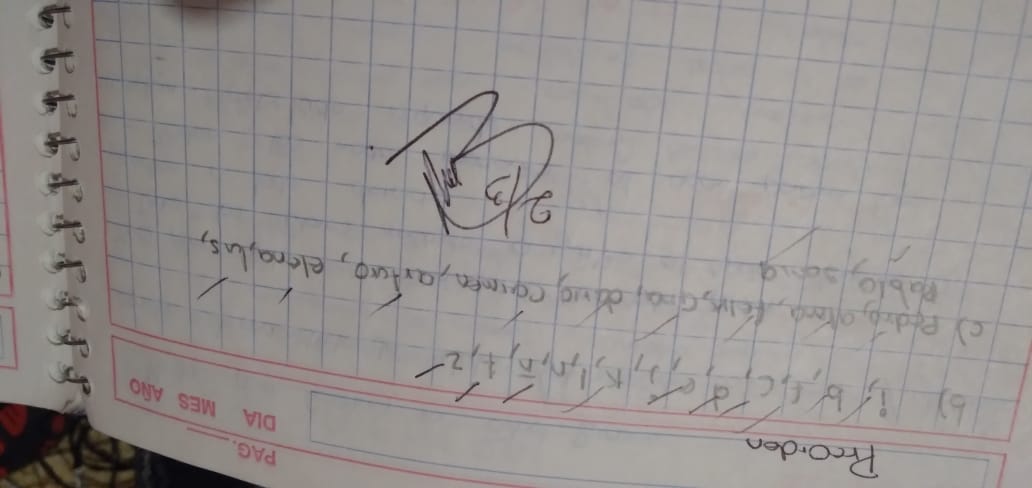 PAG.
DIA MES AÑO
b) i, b, f, c, d, e, j, k, l, n, ñ, t, z
c) Pedro, alma, Felix, Gina, david, carmen, arturo, elena, luis,
Pablo, sonia
2/3